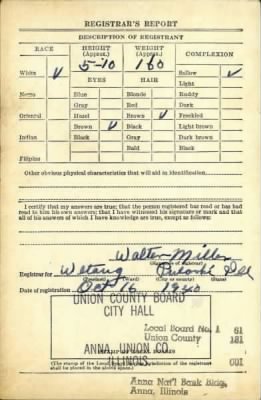 REGISTRAR'S REPORT
DESCRIPTION OF REGISTRANT
RACE HEIGHT (Approx.) WEIGHT (Approx.) COMPLEXION
White ✓ 5-10 160 Sallow ✓
EYES HAIR Light
Negro Blue Blonde Ruddy
Gray Red Dark
Oriental Hazel Brown ✓ Freckled
Brown ✓ Black Light brown
Indian Black Gray Dark brown
Bald Black
Filipino
Other obvious physical characteristics that will aid in identification
I certify that my answers are true; that the person registered has read or has had
read to him his own answers; that I have witnessed his signature or mark and that
all of his answers of which I have knowledge are true, except as follows:
Walter Miller
(Signature of registrar)
Registrar for Wetaug Pulaski Ill
(Precinct) (City or county) (State)
Date of registration Oct 16 1940
UNION COUNTY BOARD
CITY HALL
Local Board No. 1 61
Union County 181
ANNA, UNION CO.
ILLINOIS. 001
(The stamp of the Local Board having jurisdiction of the registrant
shall be placed in the above space.)
Anna Nat'l Bank Bldg.
Anna, Illinois